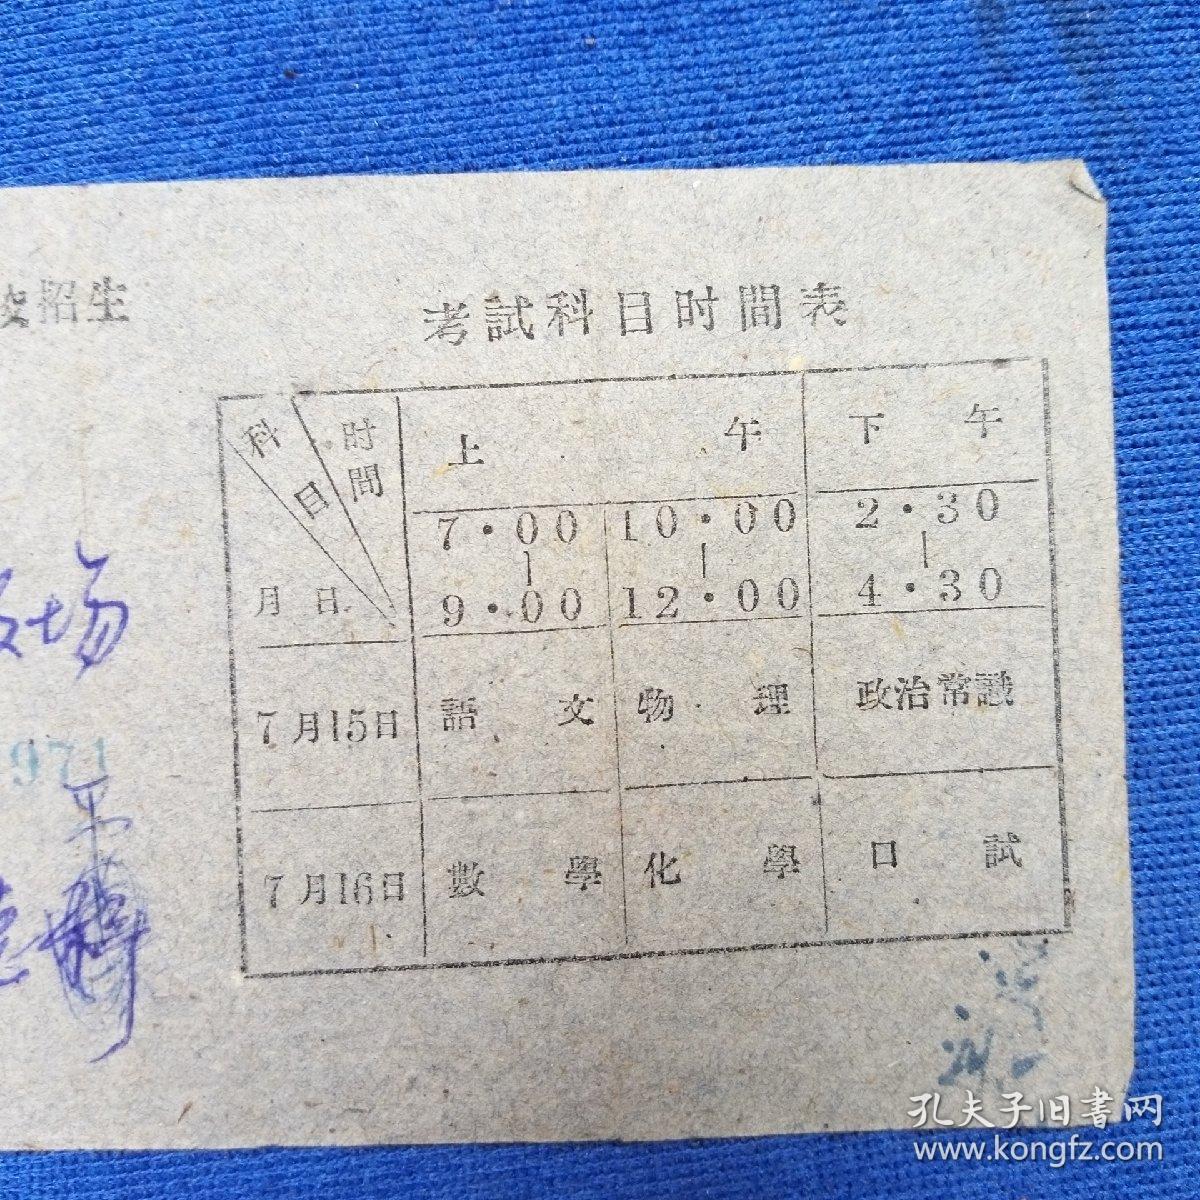 招生
考試科目时間表
科目 时間
月 日
上 午 下 午
7·00 10·00 2·30
9·00 12·00 4·30
7月15日 語文 物理 政治常識
7月16日 數學 化學 口試
场
971
孔夫子旧書网
www.kongfz.com